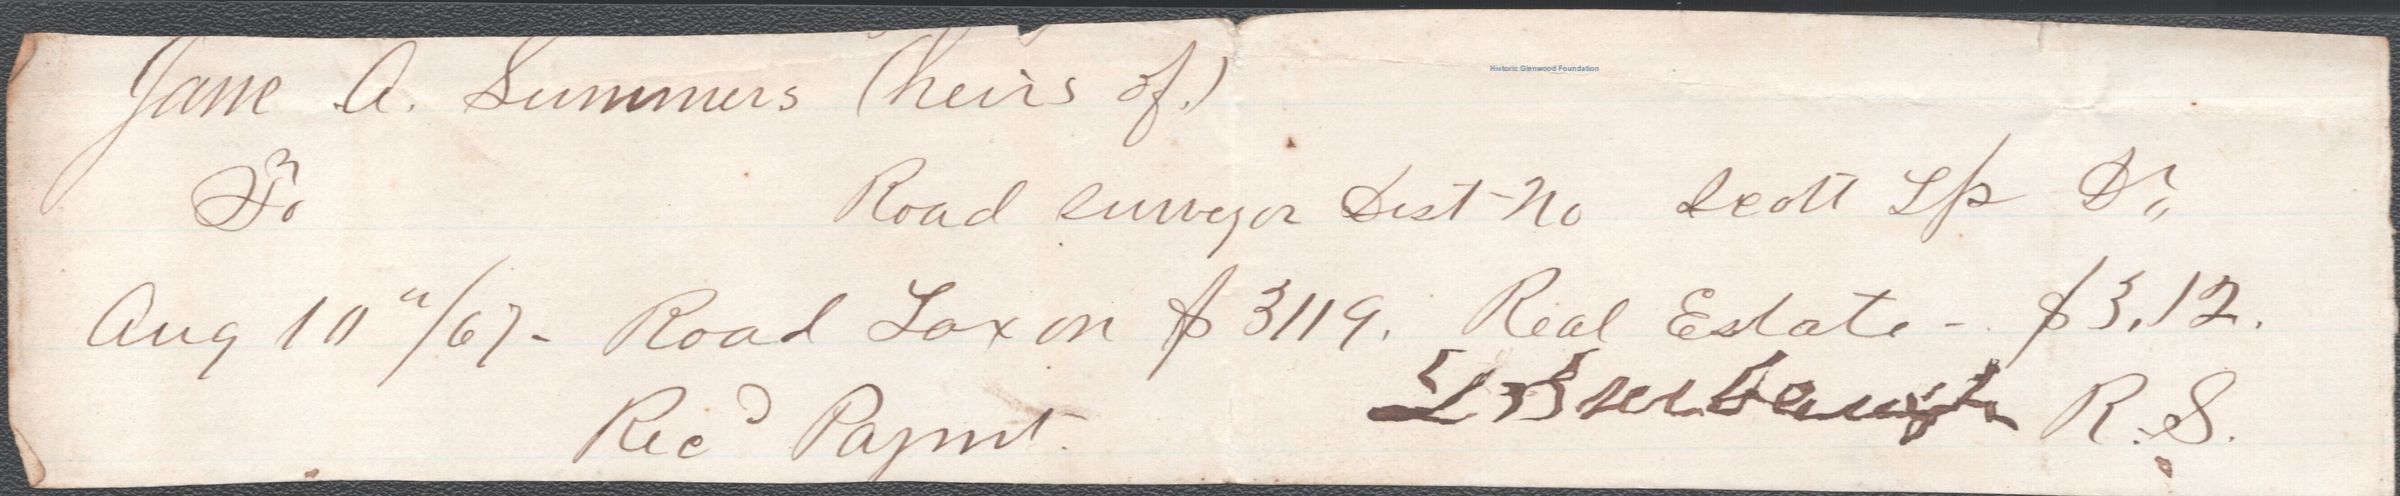 Jane A. Summers (heirs of.)
Historic Glenwood Foundation
To Road surveyor Dist No Scott Tp Dr
Aug 10"/67 - Road Tax on $3119. Real Estate - $3.12.
Rec'd Paymt. R.S.